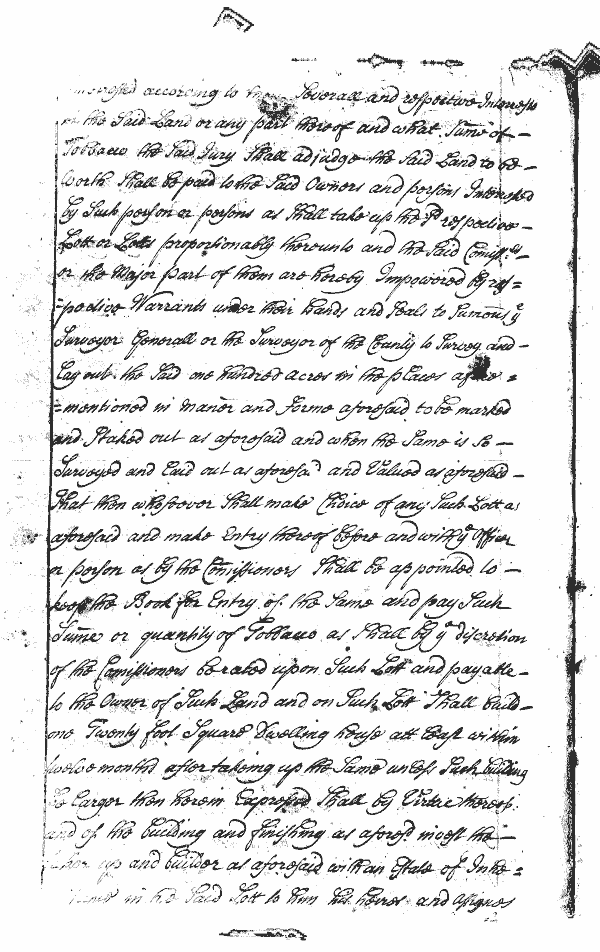 according to their Severall and respective Interests
in the Said Land or any part thereof and what Sume of —
Tobbacco the Said Jury Shall adjudge the Said Land to be —
worth Shall be paid to the Said Owners and persons Interessed
by Such person or persons as Shall take up the sd respective —
Lott or Lotts proportionably thereunto and the Said Comissrs —
or the Major part of them are hereby Impowered by res=
=pective Warrants under their hands and Seals to Sumons ye
Surveyor Generall or the Surveyor of the County to Survey and —
Lay out the Said one hundred acres in the places afore =
=mentioned in maner and forme aforesaid to be marked
and Staked out as aforesaid and when the Same is So —
Surveyed and Laid out as aforesad and Valued as aforesaid —
That then whosoever Shall make Choice of any Such Lott as
aforesaid and make Entry thereof before and with ye Officer
or person as by the Comissioners Shall be appointed to —
keep the Book for Entry of the Same and pay Such
Sume or quantity of Tobbacco as Shall by ye discretion
of the Comissioners be rated upon Such Lott and payable —
to the Owner of Such Land and on Such Lott Shall build —
one Twenty foot Square Dwelling house att Least within
twelve months after takeing up the Same unless Such building
be Larger then herein Expressed Shall by Virtue thereof
and of the building and finishing as aforesd invest the —
taker up and builder as aforesaid with an Estate of Inhe =
in the Said Lott to him his heires and Assignes